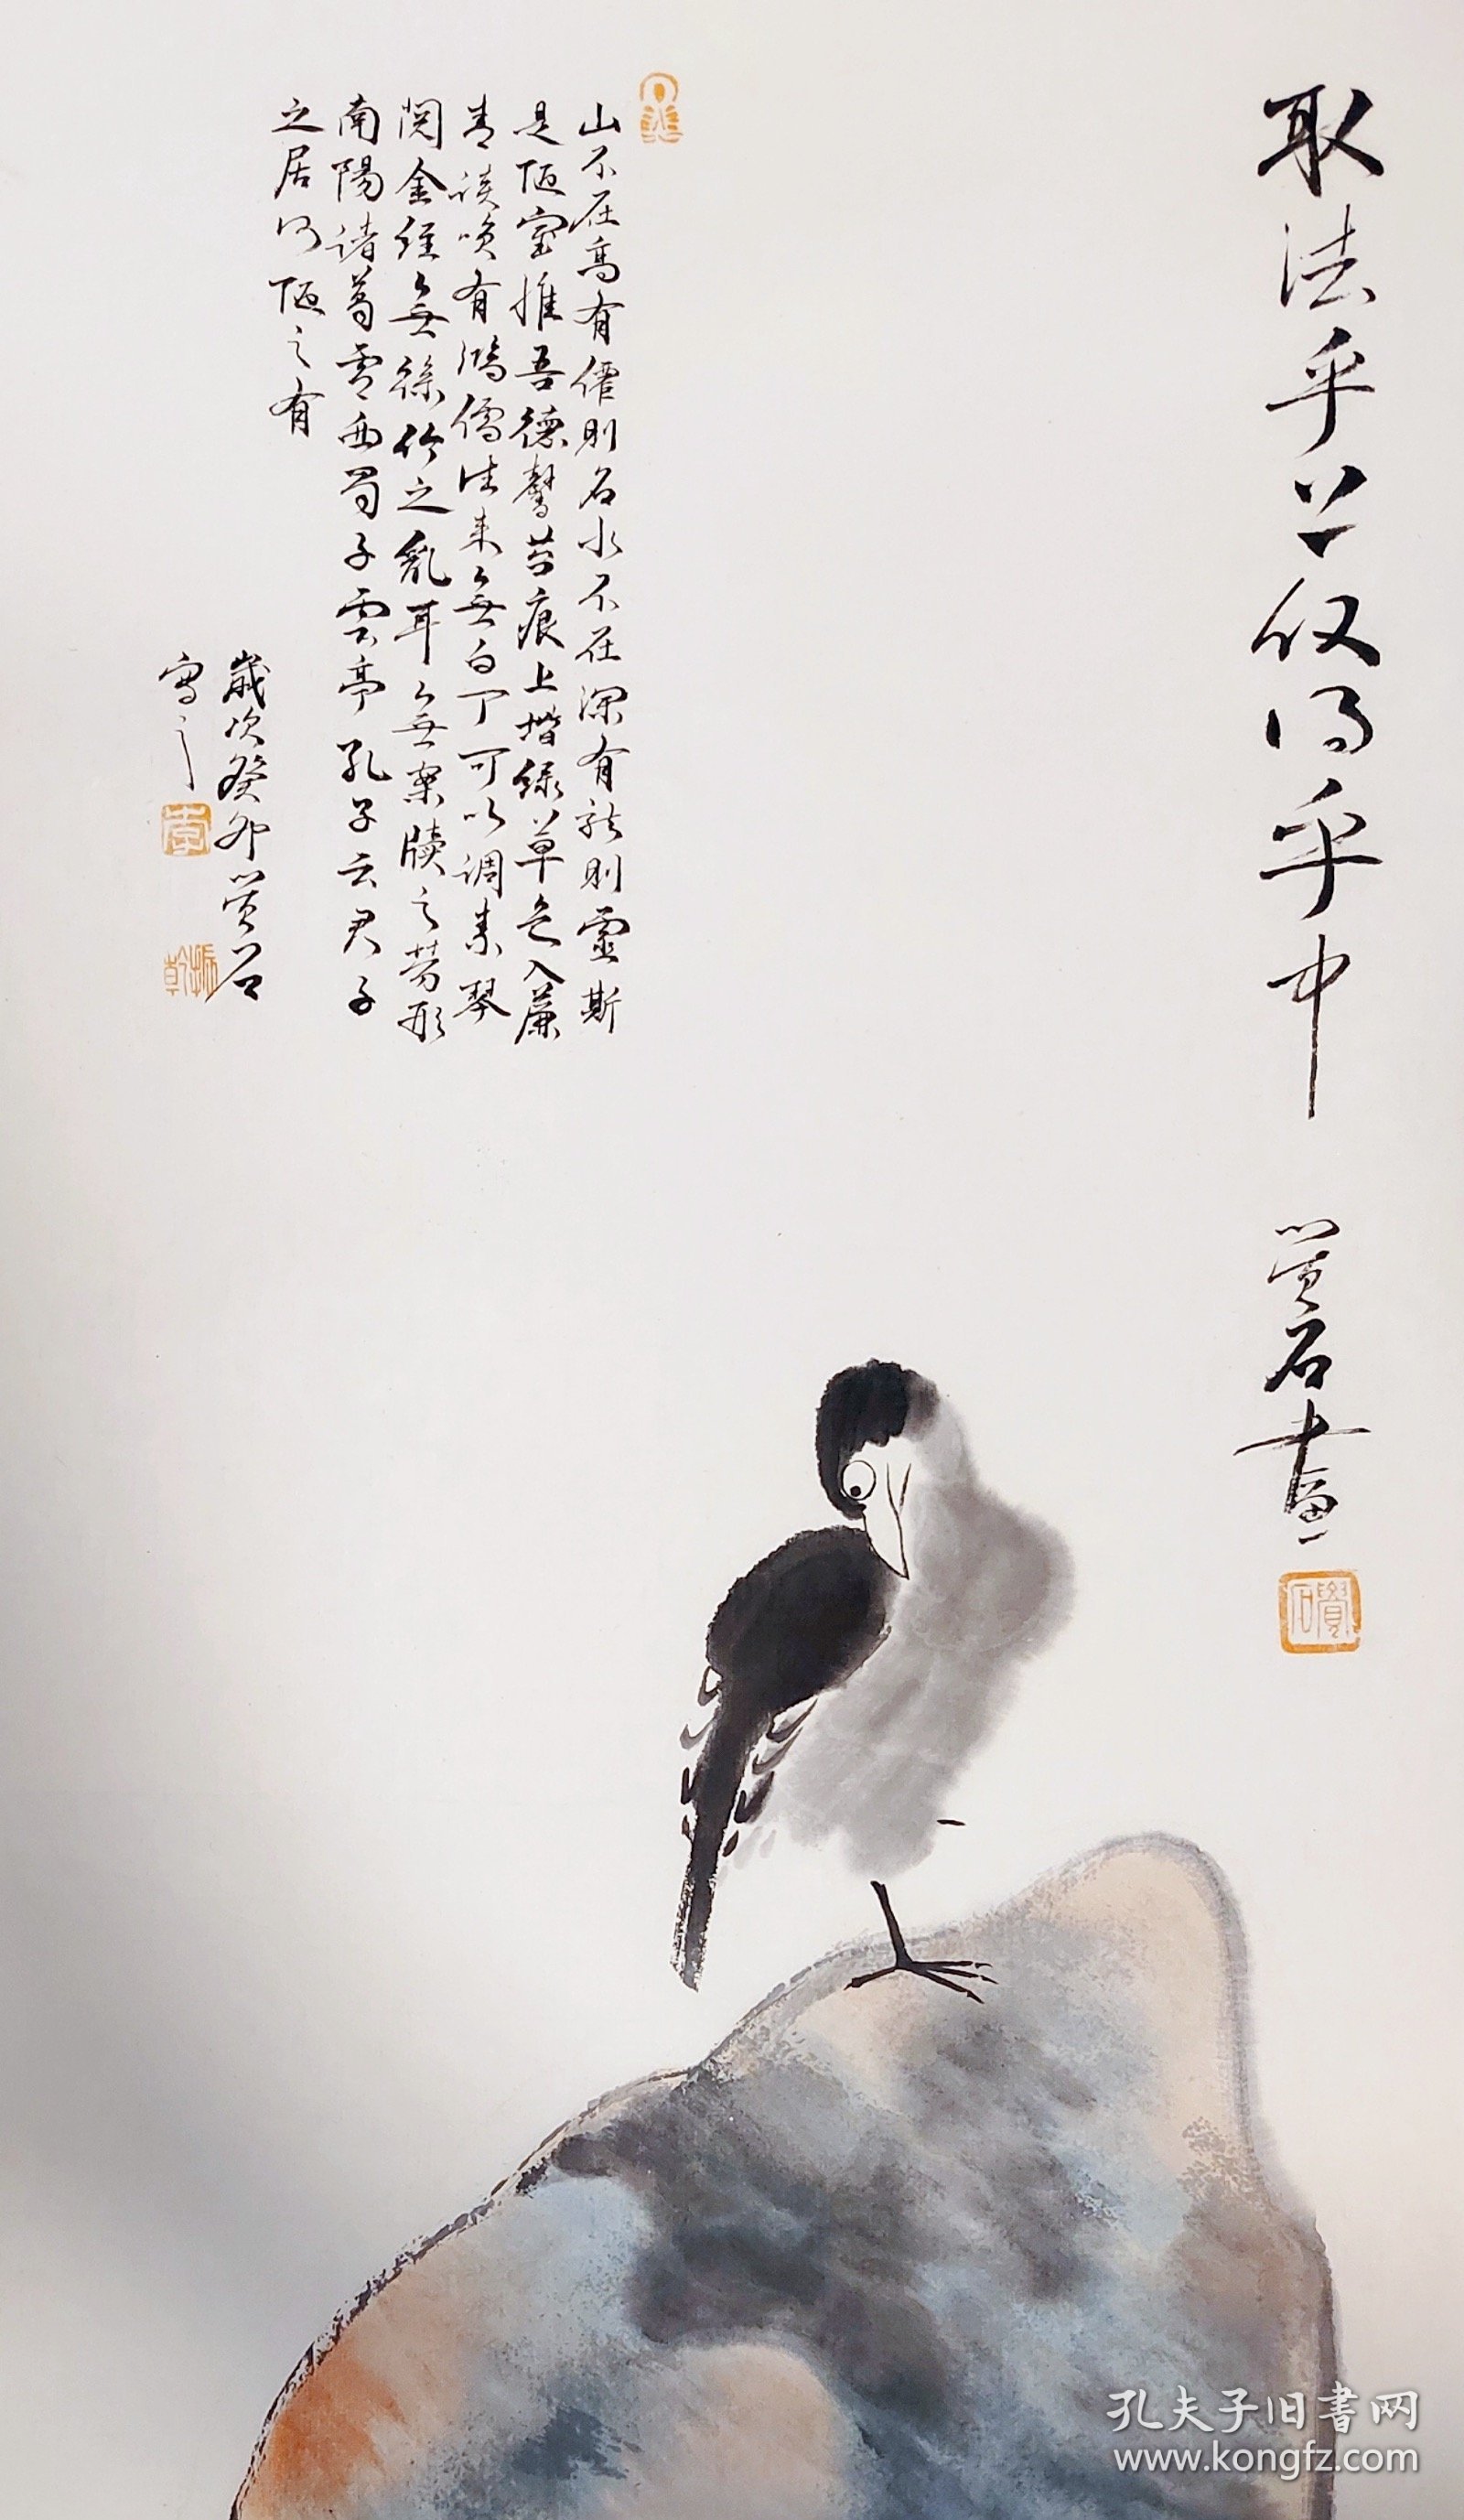 取法乎上仅得乎中
觉石畫
覺石
山不在高有僊則名水不在深有龙則靈斯
是陋室惟吾德馨苔痕上堦绿草色入簾
青谈咲有鴻儒往来無白丁可以调素琴
閱金经無絲竹之亂耳無案牘之劳形
南陽诸葛廬西蜀子雲亭孔子云君子
之居何陋之有
歲次癸卯觉石
寫之
李
振乾
孔夫子旧书网
www.kongfz.com